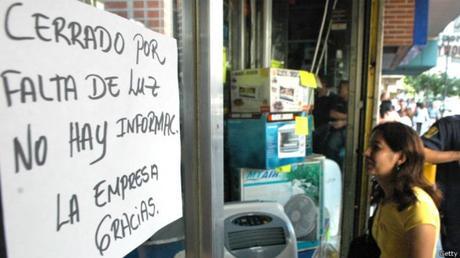 CERRADO POR
FALTA DE LUZ
NO HAY INFORMAC.
LA EMPRESA
GRACIAS.
Getty